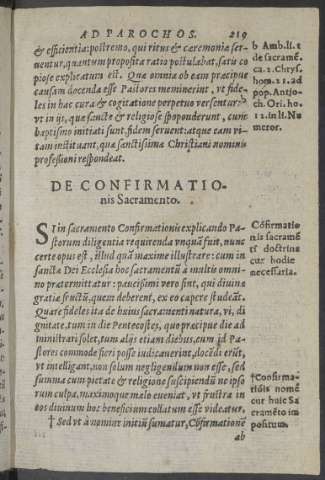 AD PAROCHOS. 219
& efficientia: postremo, qui ritus & cæremoniæ ser-
uentur, quantum proposita ratio postulabat, satis co
piose explicatum est. Quæ omnia ob eam præcipue
causam docenda esse Pastores meminerint, vt fide-
les in hac cura & cogitatione perpetuo versentur:
vt in ijs, quæ sancte & religiose spoponderunt, cum
baptismo initiati sunt, fidem seruent: atque eam vi-
tam instituant, quæ sanctissimæ Christiani nominis
professioni respondeat.
b Amb. li. 1
de sacramé.
ca. 2. Chrys.
hom. 21. ad
pop. Antio-
ch. Ori. ho.
12. in li. Nu
meror.
DE CONFIRMATIO-
nis Sacramento.
SI in sacramento Confirmationis explicando Pa-
storum diligentia requirenda vnquã fuit, nunc
certe opus est, illud quã maxime illustrare: cum in
sancta Dei Ecclesia hoc sacramentũ a multis omni-
no prætermittatur: paucissimi vero sint, qui diuinæ
gratiæ fructũ, quem deberent, ex eo capere studeãt.
Quare fideles ita de huius sacramenti natura, vi, di
gnitate, tum in die Pentecostes, quo præcipue die ad
ministrari solet, tum alijs etiam diebus, cum id Pa-
stores commode fieri posse iudicauerint, docẽdi erũt,
vt intelligant, non solum negligendum non esse, sed
summa cum pietate & religione suscipiendũ: ne ipso
rum culpa, maximoque malo eueniat, vt frustra in
eos diuinum hoc beneficium collatum esse videatur.
† Sed vt à nomine initiũ sumatur, Cõfirmationẽ
ab
Cõfirmatio
nis sacramẽ
ti doctrina
cur hodie
necessaria.
†Confirma-
tiõis nomẽ
cur huic Sa
cramẽto im
positum.